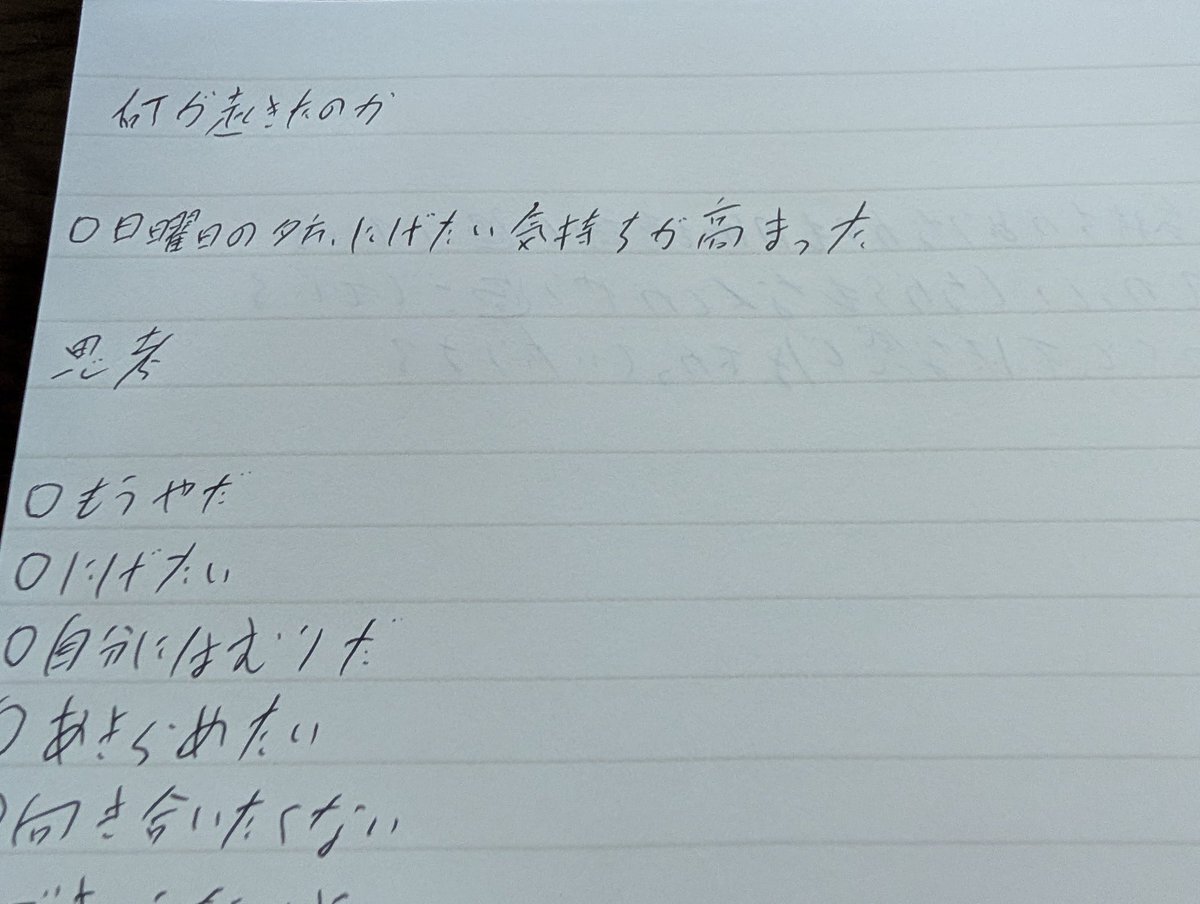 何が起きたのか
○日曜日の夕方、にげたい気持ちが高まった
思考
○もうやだ
○にげたい
○自分にはむりだ
○あきらめたい
○向き合いたくない